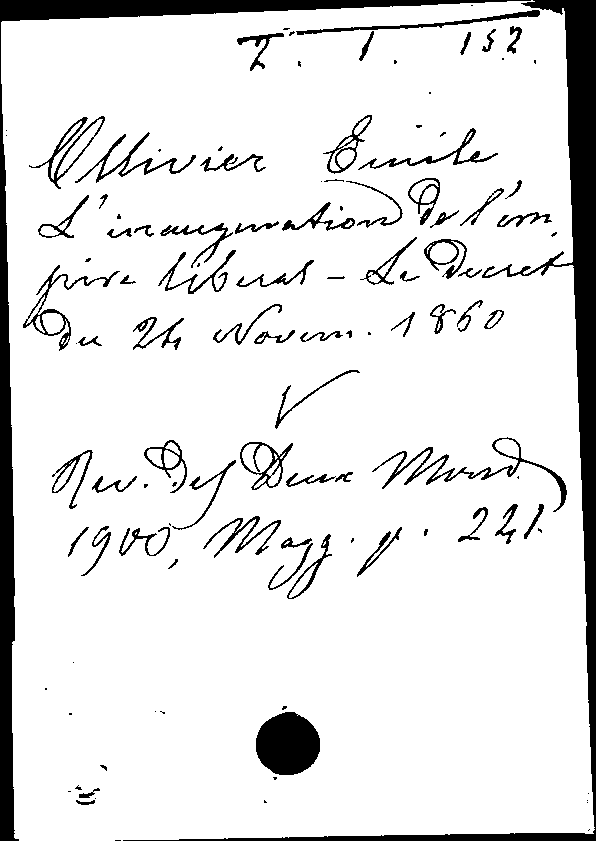 2. 1. 152.
Ollivier Emile
L'inauguration de l'em
pire libéral - Le Decret
du 24 Novem. 1860
V
Rev. des Deux Mond.
1900, Magg. p. 241.